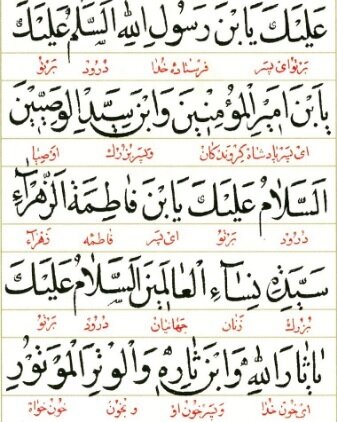 عَلَيْكَ يَا بْنَ رَسُولِ اللهِ اَلسَّلَامُ عَلَيْكَ
بر تو ای پسر فرستاده خدا درود بر تو
يَابْنَ اَمِيرِ الْمُؤْمِنِينَ وَابْنَ سَيِّدِ الْوَصِيِّينَ
ای پسر پادشاه گروندگان و پسر بزرگ اوصیا
اَلسَّلَامُ عَلَيْكَ يَابْنَ فَاطِمَةَ الزَّهْرَآءِ
درود بر تو ای پسر فاطمه زهراء
سَيِّدَةِ نِسَآءِ الْعَالَمِينَ اَلسَّلَامُ عَلَيْكَ
بزرگ زنان جهانیان درود بر تو
يَا ثَارَ اللهِ وَابْنَ ثَارِهِ وَالْوِتْرَ الْمَوْتُورَ
ای خون خدا و پسر خون او و خون خواه